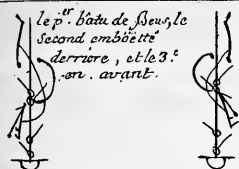 le p.er bâtu de ſseus, le
second emboëtté
derriere, et le 3.e
en avant.